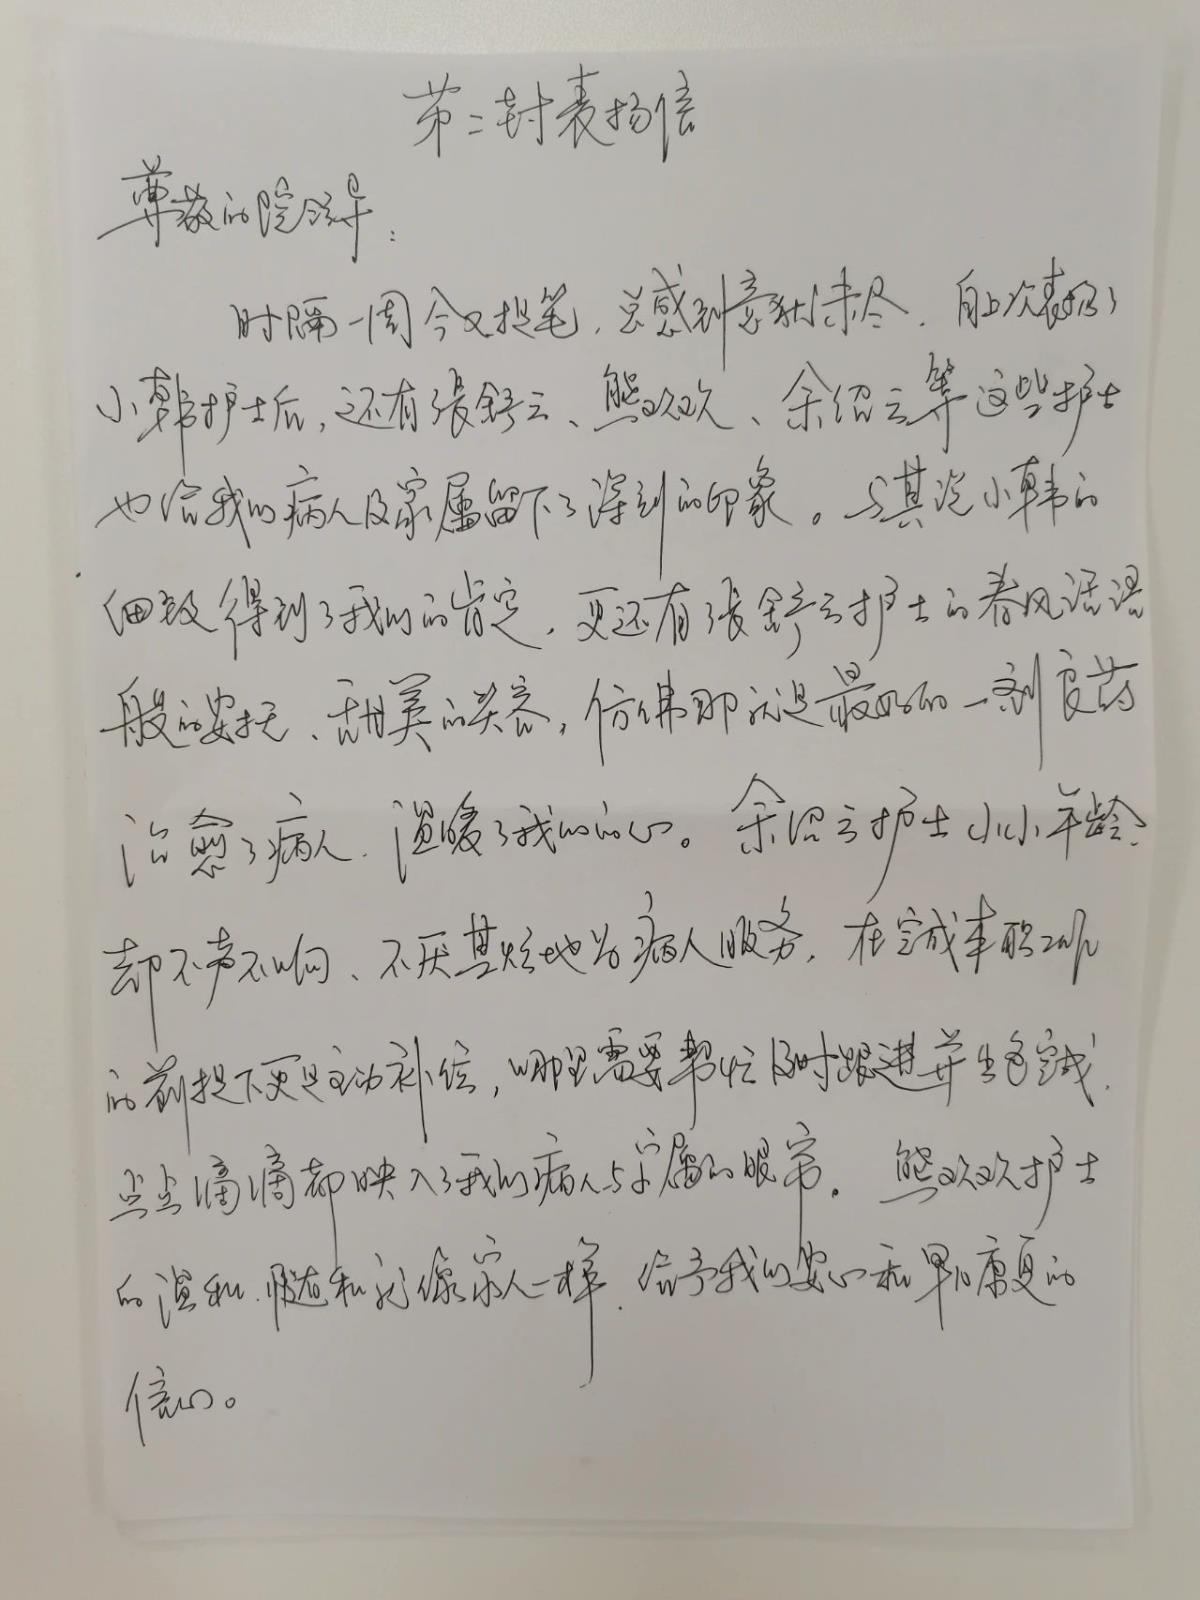 第二封表扬信
尊敬的院领导:
时隔一周今又提笔,总感到意犹未尽,自上次表扬了
小韩护士后,还有张舒云、熊欢欢、余绍云等这些护士
也给我的病人及家属留下了深刻的印象。与其说小韩的
细致得到了我们的肯定,更还有张舒云护士的春风话语
般的安抚、甜美的笑容,仿佛那就是最好的一剂良药
治愈了病人,温暖了我们的心。余绍云护士小小年龄,
却不声不响、不厌其烦地为病人服务,在完成本职工作
的前提下更是主动补位,哪里需要帮忙及时跟进并出色完成,
点点滴滴都映入了我们病人与家属的眼帘。熊欢欢护士
的温和、随和就像家人一样,给予我们安心和早日康复的
信心。